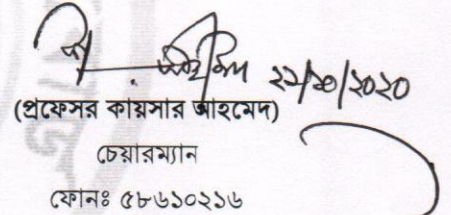 ২২/১০/২০২০
(প্রফেসর কায়সার আহমেদ)
চেয়ারম্যান
ফোনঃ ৫৮৬১০২১৬